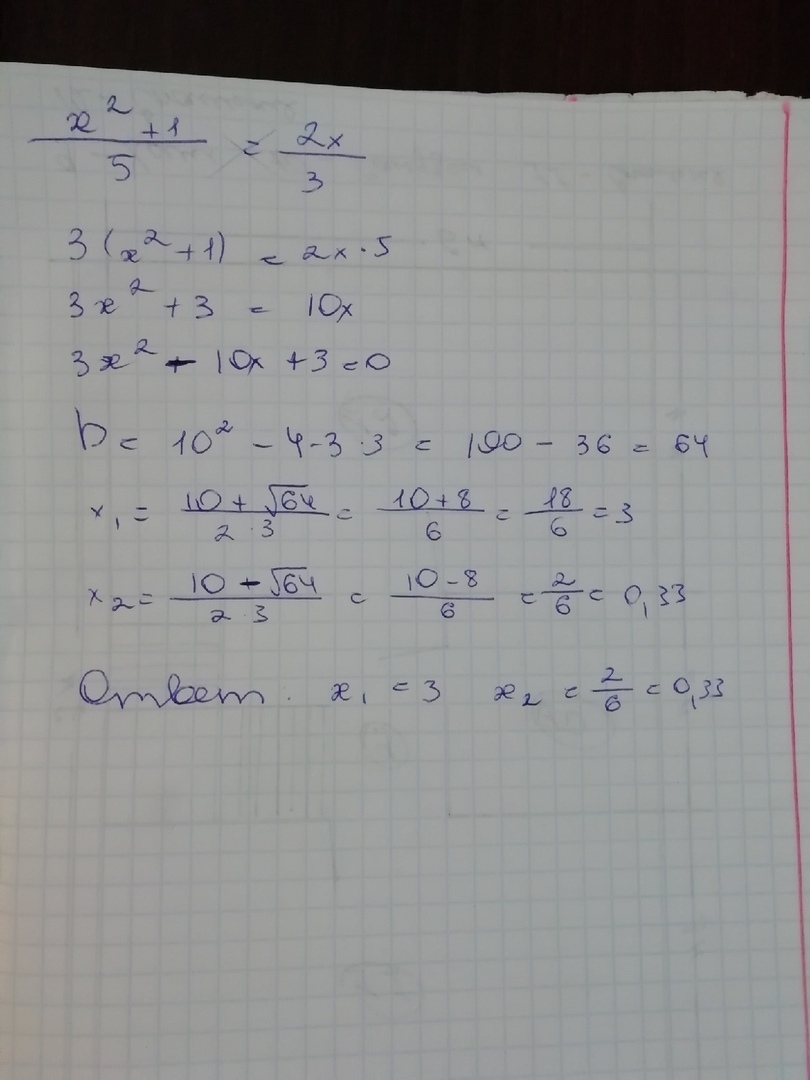 x² + 1 / 5 = 2x / 3
3 (x² + 1) = 2x · 5
3x² + 3 = 10x
3x² - 10x + 3 = 0
D = 10² - 4 - 3 · 3 = 100 - 36 = 64
x₁ = 10 + √64 / 2 · 3 = 10 + 8 / 6 = 18 / 6 = 3
x₂ = 10 - √64 / 2 · 3 = 10 - 8 / 6 = 2 / 6 = 0,33
Ответ. x₁ = 3 x₂ = 2 / 6 = 0,33